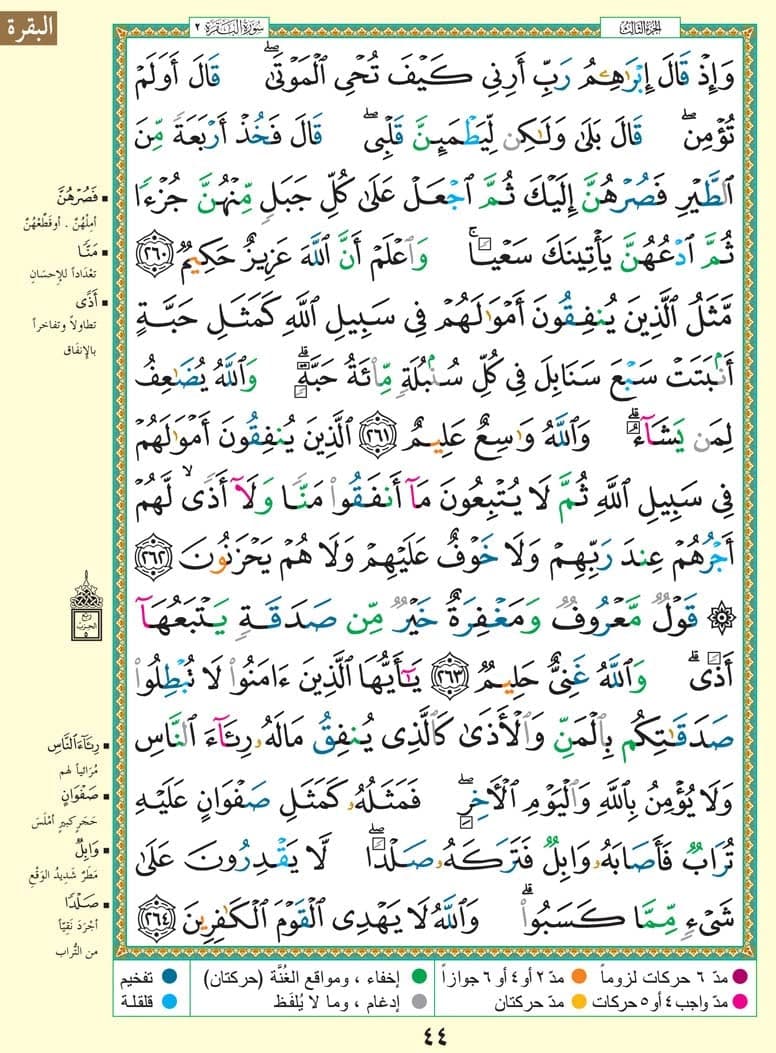 البقرة
الجزء الثالث
سورة البقرة ٢
وَإِذْ قَالَ إِبْرَٰهِـۧمُ رَبِّ أَرِنِى كَيْفَ تُحْىِ ٱلْمَوْتَىٰ ۖ قَالَ أَوَلَمْ
تُؤْمِن ۖ قَالَ بَلَىٰ وَلَـٰكِن لِّيَطْمَئِنَّ قَلْبِى ۖ قَالَ فَخُذْ أَرْبَعَةً مِّنَ
ٱلطَّيْرِ فَصُرْهُنَّ إِلَيْكَ ثُمَّ ٱجْعَلْ عَلَىٰ كُلِّ جَبَلٍ مِّنْهُنَّ جُزْءًا
ثُمَّ ٱدْعُهُنَّ يَأْتِينَكَ سَعْيًا ۚ وَٱعْلَمْ أَنَّ ٱللَّهَ عَزِيزٌ حَكِيمٌ ٢٦٠
مَّثَلُ ٱلَّذِينَ يُنفِقُونَ أَمْوَٰلَهُمْ فِى سَبِيلِ ٱللَّهِ كَمَثَلِ حَبَّةٍ
أَنۢبَتَتْ سَبْعَ سَنَابِلَ فِى كُلِّ سُنۢبُلَةٍ مِّا۟ئَةُ حَبَّةٍ ۗ وَٱللَّهُ يُضَـٰعِفُ
لِمَن يَشَآءُ ۗ وَٱللَّهُ وَٰسِعٌ عَلِيمٌ ٢٦١ ٱلَّذِينَ يُنفِقُونَ أَمْوَٰلَهُمْ
فِى سَبِيلِ ٱللَّهِ ثُمَّ لَا يُتْبِعُونَ مَآ أَنفَقُوا۟ مَنًّا وَلَآ أَذًى ۙ لَّهُمْ
أَجْرُهُمْ عِندَ رَبِّهِمْ وَلَا خَوْفٌ عَلَيْهِمْ وَلَا هُمْ يَحْزَنُونَ ٢٦٢
۞ قَوْلٌ مَّعْرُوفٌ وَمَغْفِرَةٌ خَيْرٌ مِّن صَدَقَةٍ يَتْبَعُهَآ
أَذًى ۗ وَٱللَّهُ غَنِىٌّ حَلِيمٌ ٢٦٣ يَـٰٓأَيُّهَا ٱلَّذِينَ ءَامَنُوا۟ لَا تُبْطِلُوا۟
صَدَقَـٰتِكُم بِٱلْمَنِّ وَٱلْأَذَىٰ كَٱلَّذِى يُنفِقُ مَالَهُۥ رِئَآءَ ٱلنَّاسِ
وَلَا يُؤْمِنُ بِٱللَّهِ وَٱلْيَوْمِ ٱلْـَٔاخِرِ ۖ فَمَثَلُهُۥ كَمَثَلِ صَفْوَانٍ عَلَيْهِ
تُرَابٌ فَأَصَابَهُۥ وَابِلٌ فَتَرَكَهُۥ صَلْدًا ۖ لَّا يَقْدِرُونَ عَلَىٰ
شَىْءٍ مِّمَّا كَسَبُوا۟ ۗ وَٱللَّهُ لَا يَهْدِى ٱلْقَوْمَ ٱلْكَـٰفِرِينَ ٢٦٤
▪ فَصُرْهُنَّ
أمِلْهُنّ . أو قَطِّعْهُنّ
▪ مَنًّا
تعْدَاداً للإحسَانِ
▪ أَذًى
تطاولاً وتفاخراً
بالإنفَاق
ربع
الحزب
٥
▪ رِئَآءَ ٱلنَّاسِ
مُرَائياً لهم
▪ صَفْوَانٍ
حَجَرٍ كبيرٍ أمْلَسَ
▪ وَابِلٌ
مَطَرٌ شَدِيدُ الوَقْعِ
▪ صَلْدًا
أجْرَدَ نَقِيّاً
من التُّراب
مدّ ٦ حركات لزوماً
مدّ ٢ أو ٤ أو ٦ جوازاً
إخفاء ، ومواقع الغُنَّة (حركتان)
تفخيم
مدّ واجب ٤ أو ٥ حركات
مدّ حركتان
إدغام ، وما لا يُلفَظ
قلقلة
٤٤